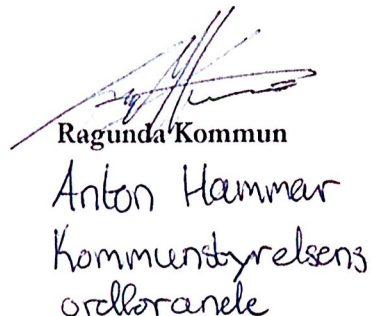 Ragunda Kommun
Anton Hammar
Kommunstyrelsens
ordförande